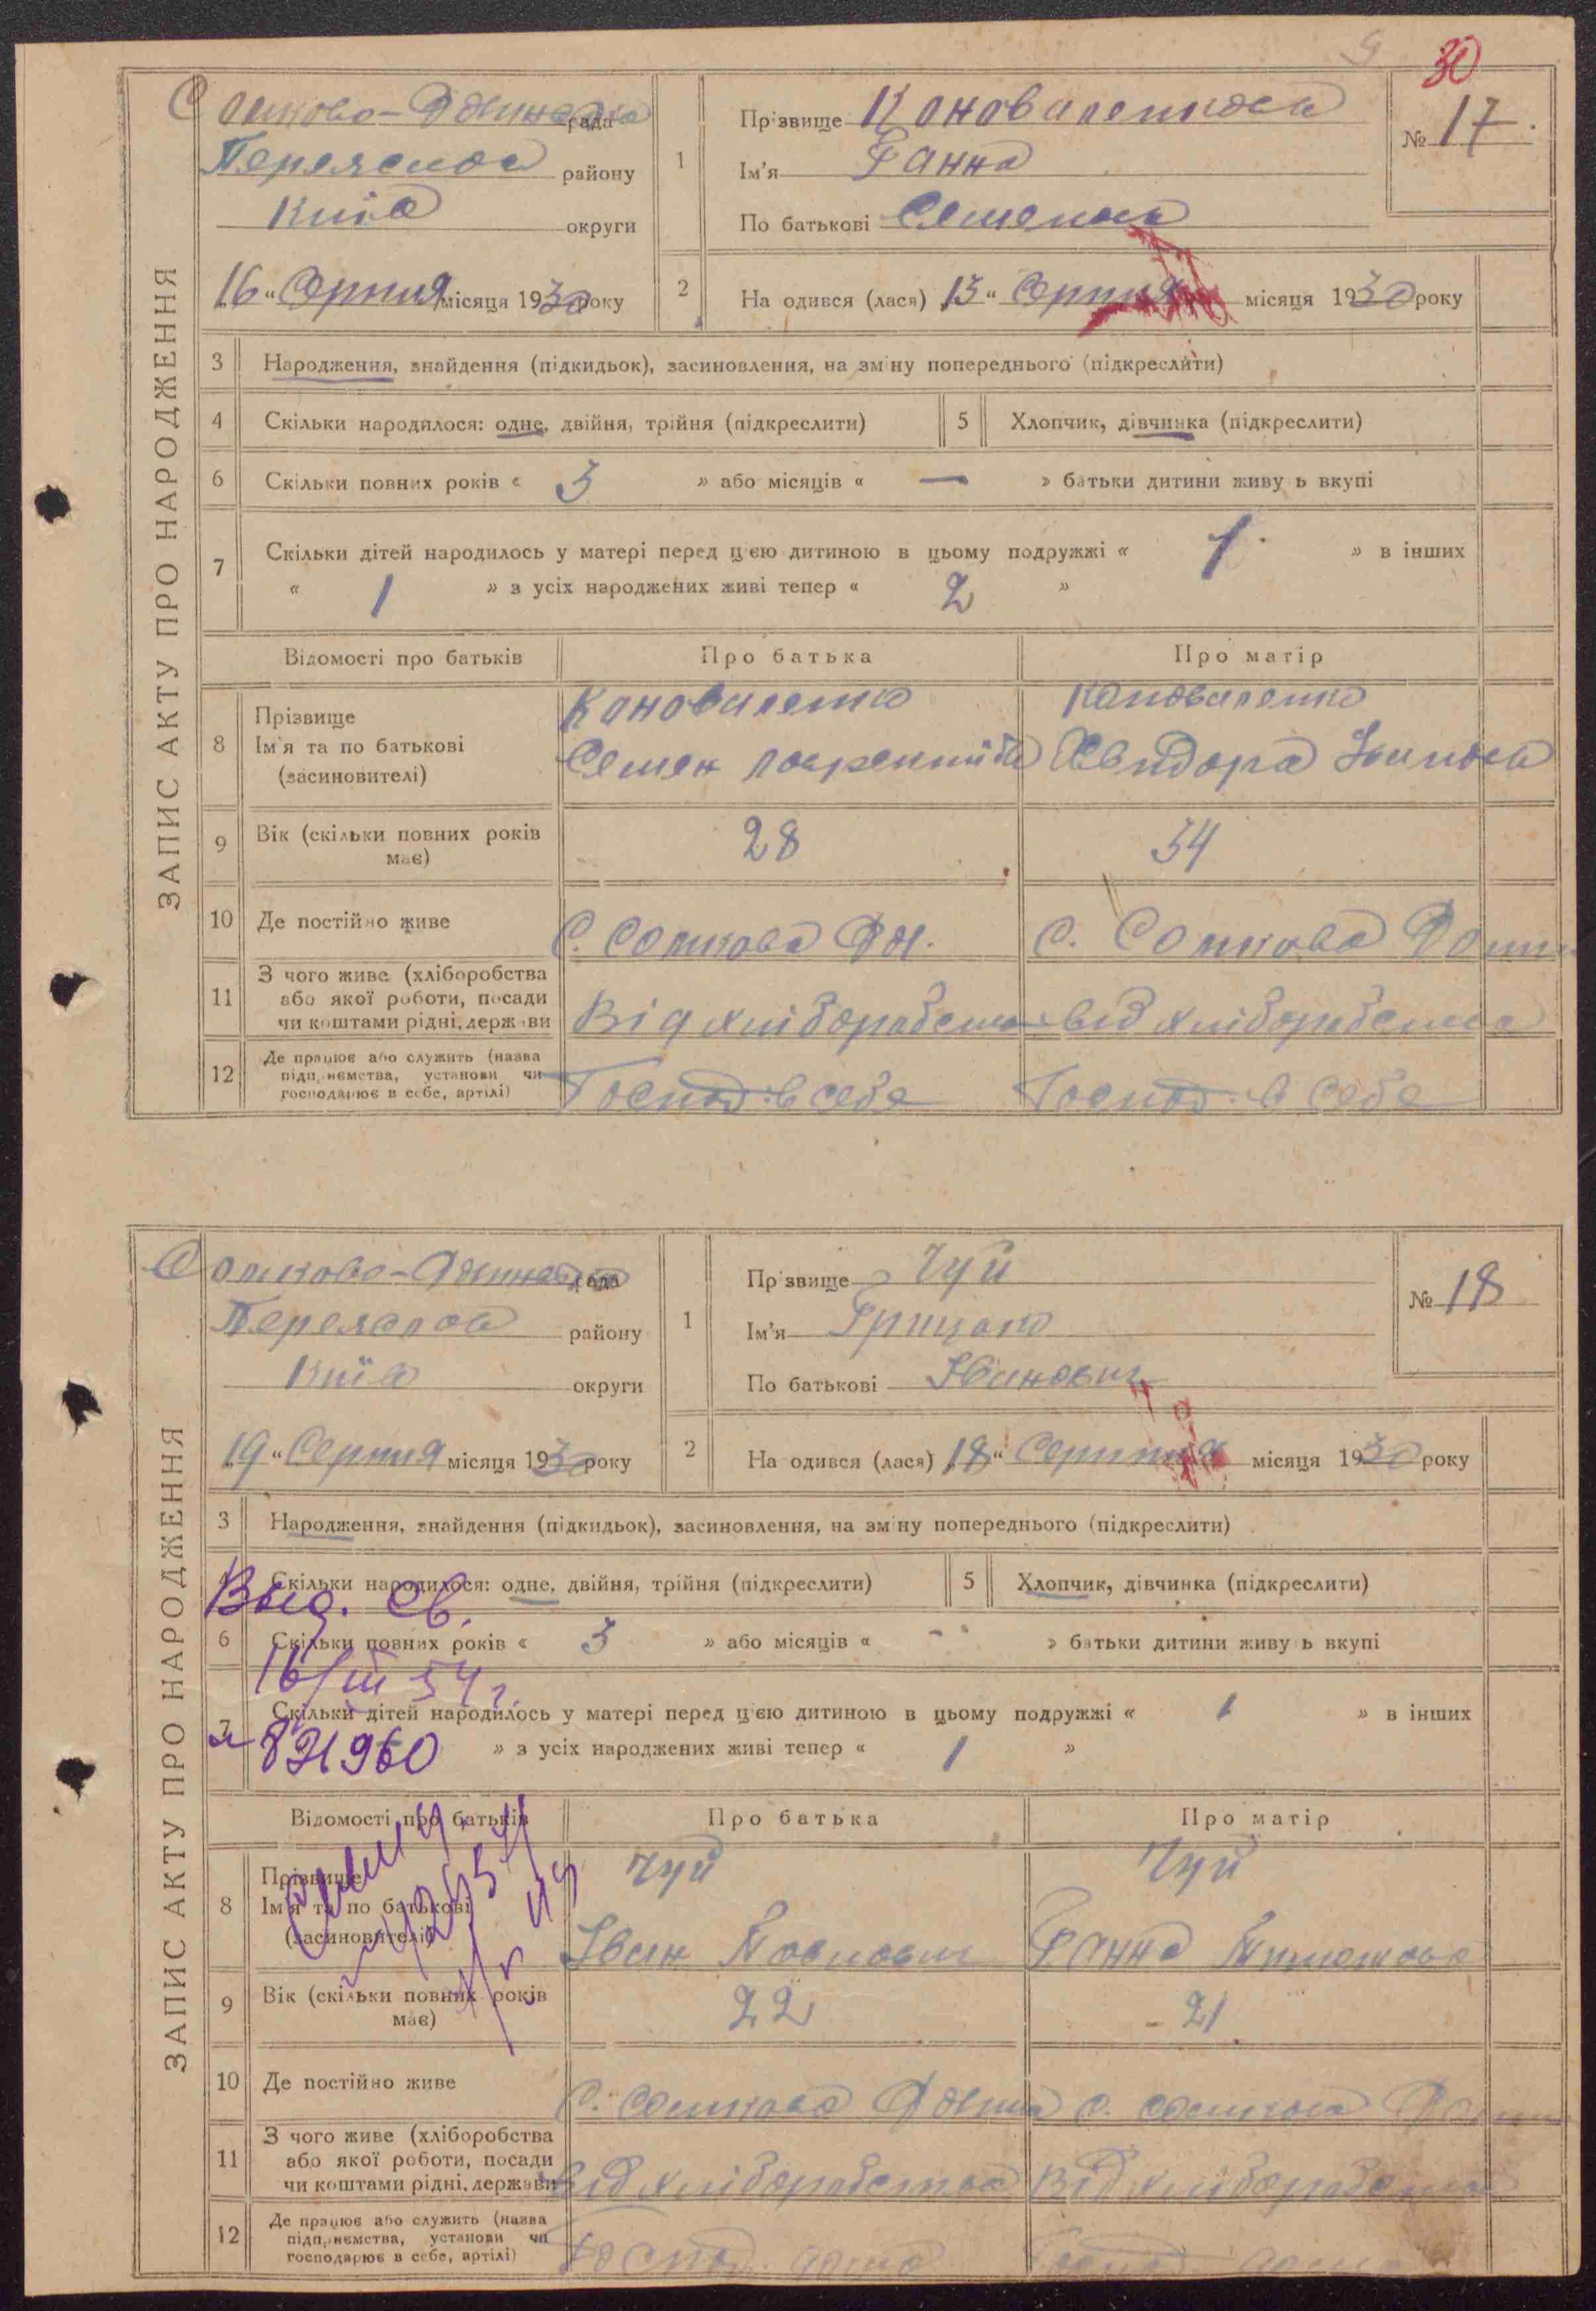 9 30
ЗАПИС АКТУ ПРО НАРОДЖЕННЯ
рада
району
округи
„16“ Серпня місяця 1930 року
1
Прізвище
Ім'я Ганна
По батькові
№ 17.
2 На одився (лася) „15“ Серпня місяця 1930 року
3 Народження, знайдення (підкидьок), засиновлення, на зміну попереднього (підкреслити)
4 Скільки народилося: одне, двійня, трійня (підкреслити)
5 Хлопчик, дівчинка (підкреслити)
6 Скільки повних років « 3 » або місяців « — » батьки дитини живу ь вкупі
7 Скільки дітей народилось у матері перед цією дитиною в цьому подружжі « 1 » в інших
« 1 » з усіх народжених живі тепер « 2 »
Відомості про батьків Про батька Про матір
8 Прізвище
Ім'я та по батькові
(засиновителі)
Коноваленко
Семен
Коноваленко
9 Вік (скільки повних років
має)
28 34
10 Де постійно живе
С. Сомкова С. Сомкова
11 З чого живе (хліборобства
або якої роботи, посади
чи коштами рідні, держави
Від хліборобства від хліборобства
12 Де працює або служить (назва
підприємства, установи чи
господарює в себе, артілі)
Господ. в себе Господ. в себе
ЗАПИС АКТУ ПРО НАРОДЖЕННЯ
рада
району
округи
„19“ Серпня місяця 1930 року
1
Прізвище Чуй
Ім'я Грицько
По батькові Іванович
№ 18
2 На одився (лася) „18“ Серпня місяця 1930 року
3 Народження, знайдення (підкидьок), засиновлення, на зміну попереднього (підкреслити)
Скільки народилося: одне, двійня, трійня (підкреслити)
5 Хлопчик, дівчинка (підкреслити)
Выд. св.
6 Скільки повних років « 3 » або місяців « - » батьки дитини живу ь вкупі
16/III 54 г.
7 Скільки дітей народилось у матері перед цією дитиною в цьому подружжі « 1 » в інших
» з усіх народжених живі тепер « 1 »
821960
Відомості про батьків Про батька Про матір
8 Прізвище
Ім'я та по батькові
(засиновителі)
Чуй
Іван
Чуй
Ганна
9 Вік (скільки повних років
має)
22 21
10 Де постійно живе
С. Сомкова с. Сомкова
11 З чого живе (хліборобства
або якої роботи, посади
чи коштами рідні, держави
Від хліборобства Від хліборобства
12 Де працює або служить (назва
підприємства, установи чи
господарює в себе, артілі)
Господ. Господ.